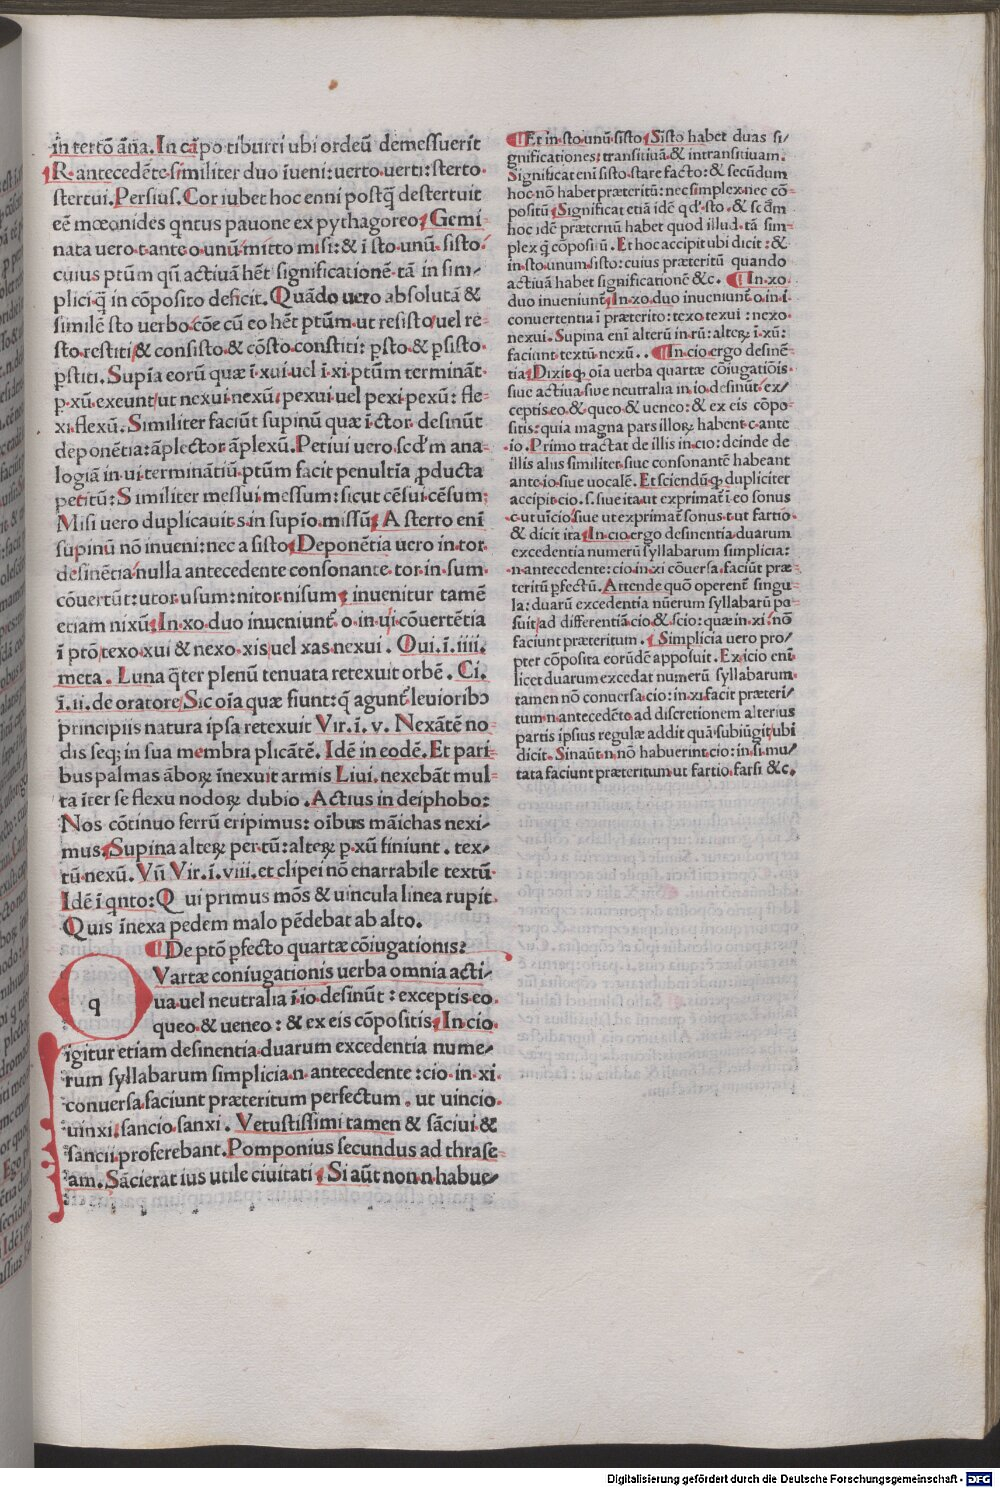 in tertō āña. In cāpo tiburti ubi ordeū demessuerit
R. antecedēte similiter duo iueni: uerto uerti: sterto.
stertui. Persius. Cor iubet hoc enni postq̄ destertuit
eē mœonides qntus pauone ex pythagoreo. Gemi-
nata uero .t. ante o unū mitto misi: & ī sto unū sisto:
cuius ptūm qñ actiuā hēt significationē tā in sim/
plici q̄ in cōposito deficit. Quādo uero absolutā &
similē sto uerbo cōe cū eo hēt ptūm. ut resisto uel re-
sto. restiti & consisto & cōsto constiti: ꝑsto & ꝑsisto.
ꝑstiti. Supīa eorū quæ ī. xui uel ī. xi ptūm termināt.
ꝑ. xū. exeunt ut nexui nexū: pexui uel pexi pexū: fle-
xi flexū. Similiter faciūt supinū quæ ī ctor desinūt
deponētia: āplector āplexū. Petiui uero scd'm ana-
logiā in ui terminātiū ptūm facit penultīa ꝓducta
petitū: Similiter messui messum: sicut cēsui cēsum:
Misi uero duplicauit s. in supīo. missū. A sterto enī
supinū nō inueni: nec a sisto. Deponētia uero in tor.
desinētia nulla antecedente consonante tor. in sum.
cōuertūt: utor usum: nitor nisum: inuenitur tamē
etiam nixū. In. xo. duo inueniunt. o. in ui cōuertētia
ī ptō texo xui & nexo. xis uel xas nexui. Oui. ī. iiii.
meta. Luna q̄ter plenū tenuata retexuit orbē. Ci.
ī. ii. de oratore Sic oīa quæ fiunt: q̄ agunt leuioribꝰ
principiis natura ipsa retexuit Vir. ī. v. Nexātē no-
dis seq; in sua membra plicātē. Idē in eodē. Et pari-
bus palmas āboꝝ inexuit armis Liui. nexebāt mul-
ta iter se flexu nodoꝝ dubio. Actius in deiphobo:
Nos cōtinuo ferrū eripimus: oībus māichas nexi/
mus. Supina alteꝝ per. tū: alteꝝ ꝑ xū finiunt. tex-
tū nexū. Vñ Vir. ī. viii. et clipei nō enarrabile textū.
Idē ī qnto: Qui primus mōs & uincula linea rupit.
Quis inexa pedem malo pēdebat ab alto.
De ptō ꝑfecto quartæ cōiugationis:
q
Vartæ coniugationis uerba omnia acti/
ua uel neutralia ī. io. desinūt: exceptis eo.
queo & ueneo: & ex eis cōpositis. In cio
igitur etiam desinentia duarum excedentia nume/
rum syllabarum simplicia. n. antecedente: cio. in. xi.
conuersa faciunt præteritum perfectum. ut uincio.
uinxi. sancio sanxi. Vetustissimi tamen & sāciui &
sancii proferebant. Pomponius secundus ad thrase-
am. Sācierat ius utile ciuitati. Si aūt non n. habue/
Et in. sto. unū. sisto. Sisto habet duas si/
gnificationes: transitiuā & intransitiuam.
Significat enī sisto stare facto: & secūdum
hoc nō habet præteritū: nec simplex nec cō-
positū. Significat etiā idē qd'. sto. & scd̄m
hoc idē præteritū habet quod illud. tā sim-
plex q̄ cōpositū. Et hoc accipit ubi dicit: &
in. sto. unum sisto: cuius præteritū quando
actiuā habet significationē &c. In. xo.
duo inueniunt. In. xo. duo inueniunt. o. in. i.
conuertentia ī præterito: texo texui: nexo.
nexui. Supina enī alterū in. rū: alteꝝ ī. xū:
faciunt textū nexū.. In. cio ergo desinē-
tia. Dixit q̄ oīa uerba quartæ cōiugatiōis.
siue actiua siue neutralia in. io. desinūt ex/
ceptis eo. & queo & ueneo: & ex eis cōpo-
sitis: quia magna pars illoꝝ habent c. ante
.io. Primo tractat de illis in. cio: deinde de
illis aliis similiter siue consonantē habeant
ante. io. siue uocalē. Et sciendū q̄ dupliciter
accipit cio. s. siue ita ut exprimat ī eo sonus
.c. ut uīcio siue ut exprimat sonus. t. ut fartio.
& dicit ita. In. cio ergo desinentia duarum
excedentia numerū syllabarum simplicia:
.n. antecedente: cio. in. xi cōuersa. faciūt præ-
teritū ꝑfectū. Attende quō operent singu-
la: duarū excedentia nūerum syllabarū po-
suit ad differentiā cio. & scio: quæ in. xi. nō
faciunt præteritum. Simplicia uero pro/
pter cōposita eorūdē apposuit. Ex icio enī
licet duarum excedat numerū syllabarum.
tamen nō conuersa. cio: in. xi. facit præteri/
tum. n. antecedēte ad discretionem alterius
partis ipsius regulæ addit quā subiūgit ubi
dicit. Si aūt. n. nō habuerint. cio: in. si. mu/
tata faciunt præteritum ut fartio. farsi &c.
Digitalisierung gefördert durch die Deutsche Forschungsgemeinschaft - DFG